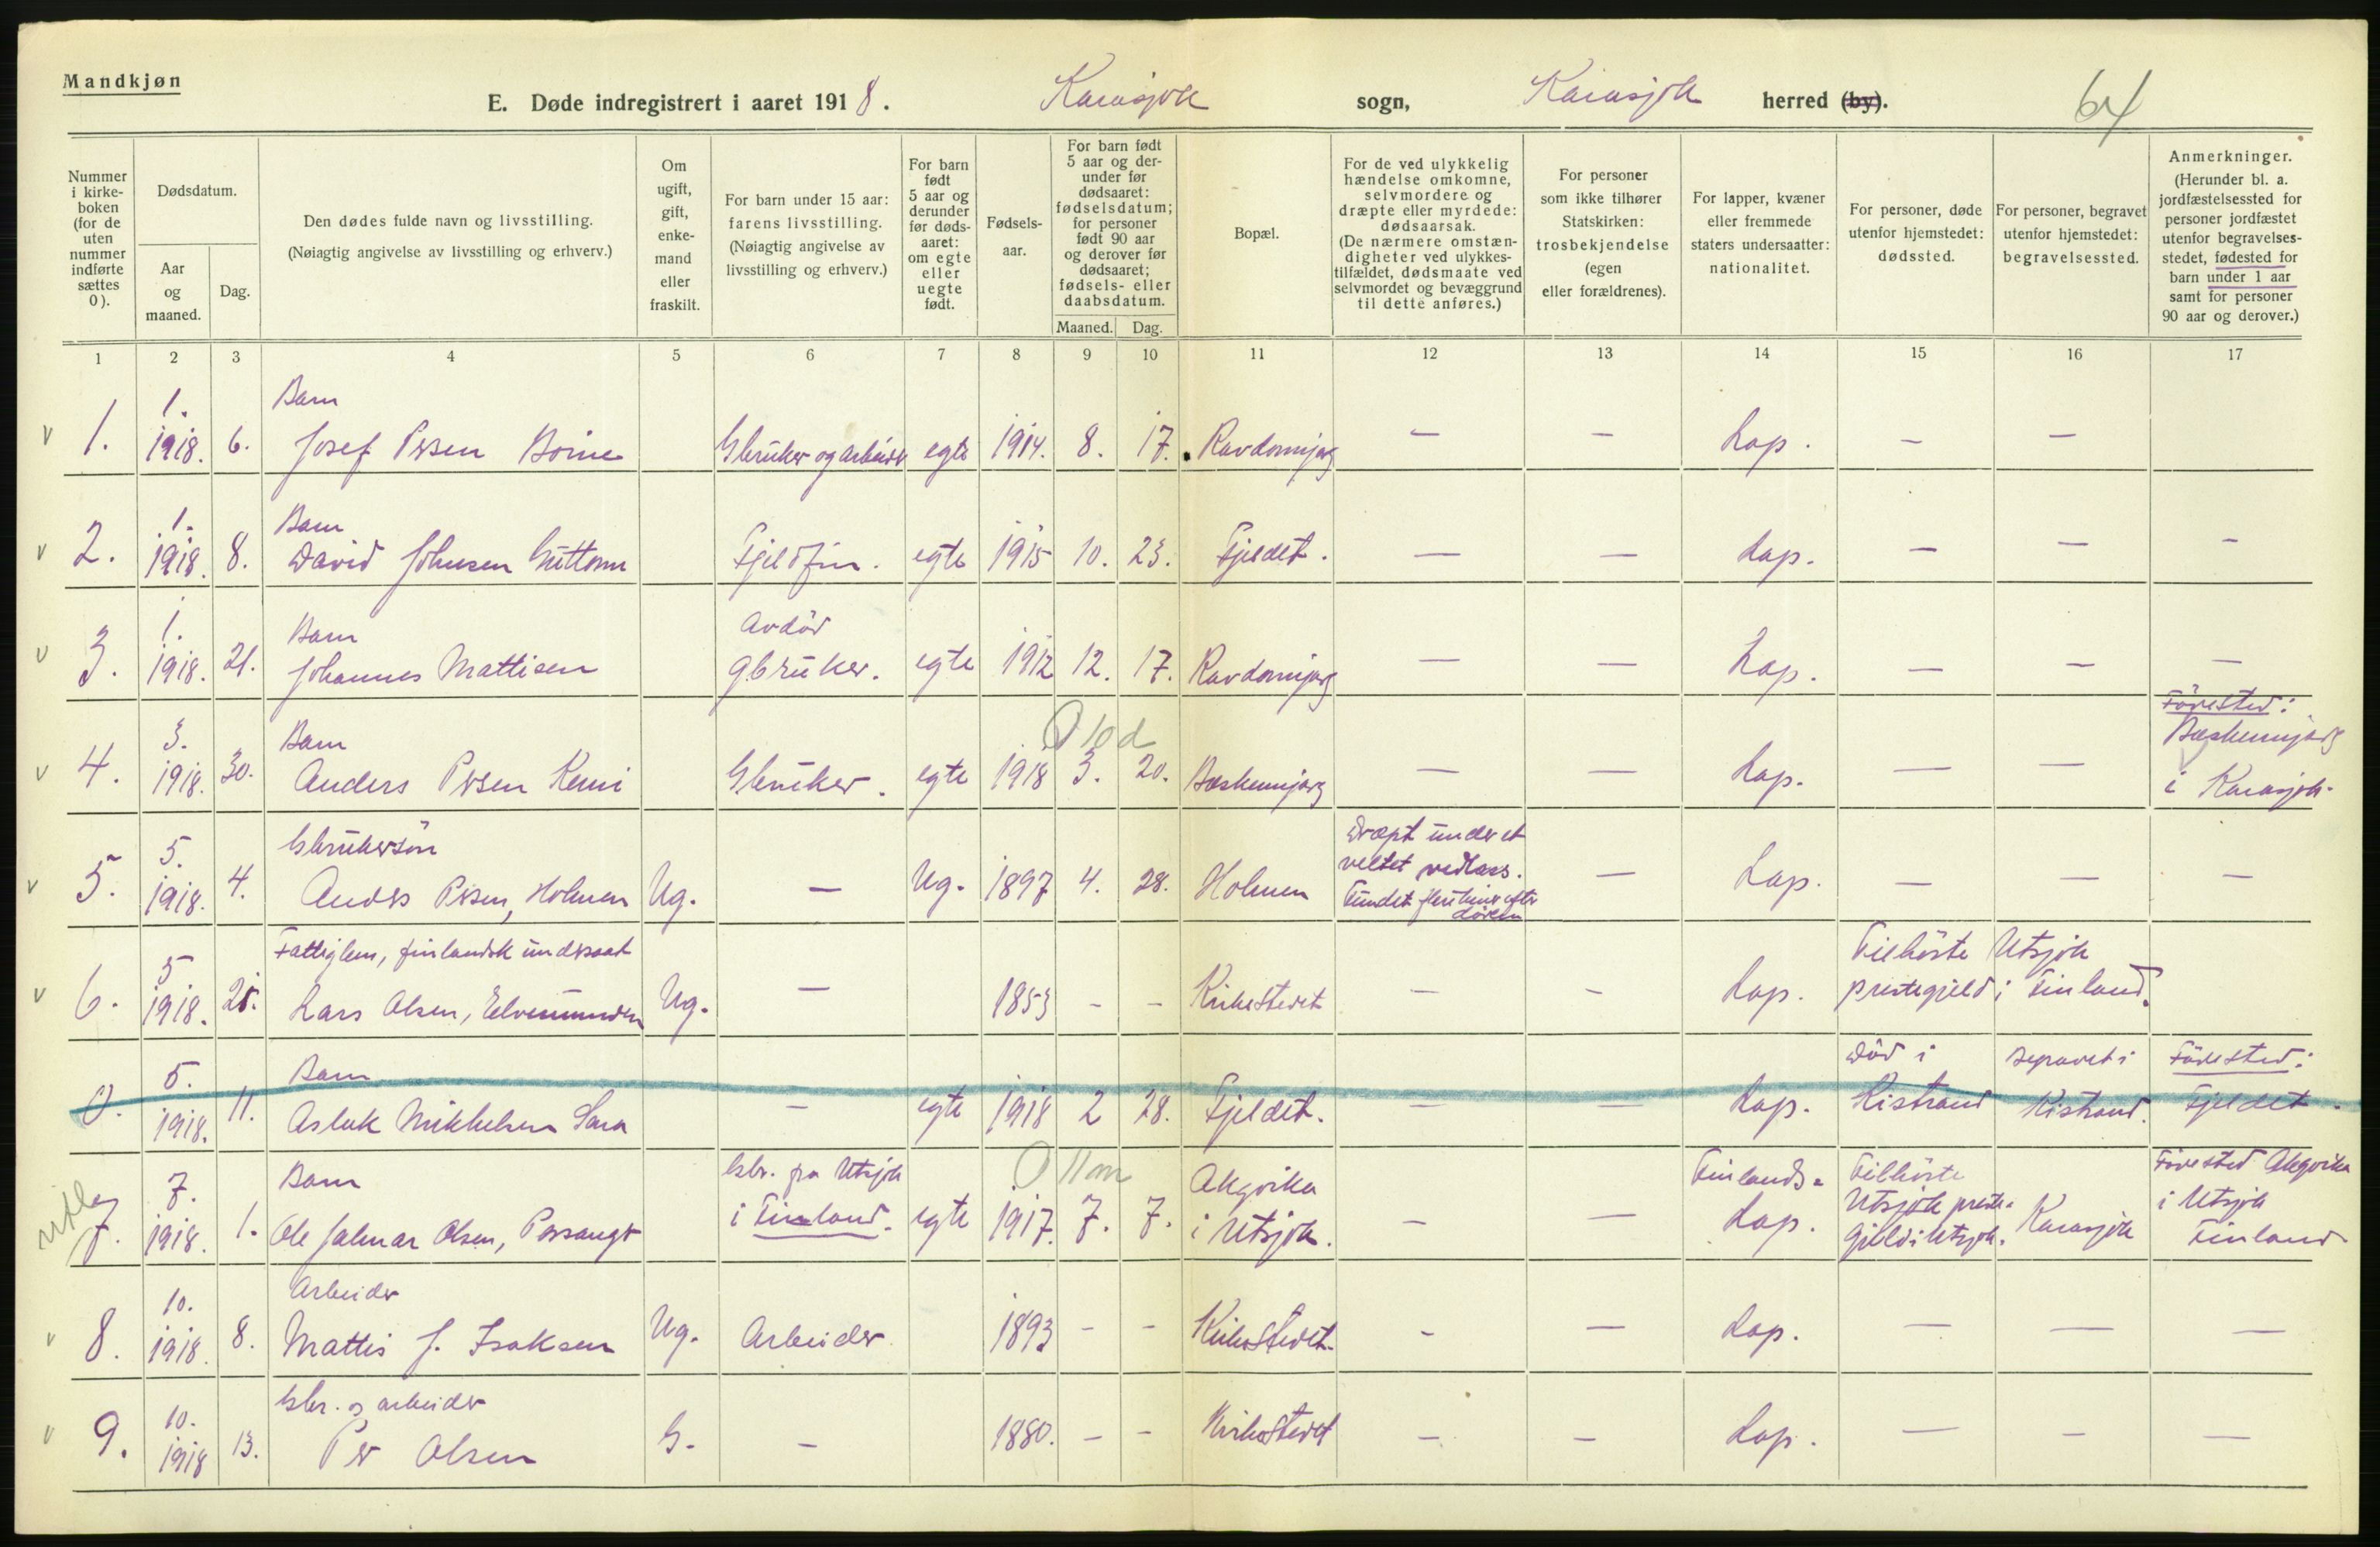 Mandkjøn
E. Døde indregistrert i aaret 1918. Karasjok sogn, Karasjok herred (by). 64
Nummer i kirke-boken (for de uten nummer indførte sættes 0).
Dødsdatum.
Aar og maaned.
Dag.
Den dødes fulde navn og livsstilling.
(Nøiagtig angivelse av livsstilling og erhverv.)
Om ugift, gift, enke-mand eller fraskilt.
For barn under 15 aar: farens livsstilling.
(Nøiagtig angivelse av livsstilling og erhverv.)
For barn født 5 aar og derunder før døds-aaret: om egte eller uegte født.
Fødsels-aar.
For barn født 5 aar og der-under før dødsaaret: fødselsdatum; for personer født 90 aar og derover før dødsaaret; fødsels- eller daabsdatum.
Maaned. Dag.
Bopæl.
For de ved ulykkelig hændelse omkomne, selvmordere og dræpte eller myrdede: dødsaarsak.
(De nærmere omstæn-digheter ved ulykkes-tilfældet, dødsmaate ved selvmordet og bevæggrund til dette anføres.)
For personer som ikke tilhører Statskirken: trosbekjendelse (egen eller forældrenes).
For lapper, kvæner eller fremmede staters undersaatter: nationalitet.
For personer, døde utenfor hjemstedet: dødssted.
For personer, begravet utenfor hjemstedet: begravelsessted.
Anmerkninger.
(Herunder bl. a. jordfæstelsessted for personer jordfæstet utenfor begravelses-stedet, fødested for barn under 1 aar samt for personer 90 aar og derover.)
1 2 3 4 5 6 7 8 9 10 11 12 13 14 15 16 17
v 1. 1. 1918. 6. Barn
Josef Persen Boine Gbruker og arbeider egte 1914. 8. 17. Ravdonnjarg — — Lap. — —
v 2. 1. 1918. 8. Barn
David Johnsen Guttorm Fjeldfin. egte 1915 10. 23. Fjeldet. — — Lap. — — —
v 3. 1. 1918. 21. Barn
Johannes Mattisen Avdød gbruker. egte 1912 12. 17. Ravdonnjarg — — Lap. — — —
0 10 d
v 4. 3. 1918. 30. Barn
Anders Persen Kemi Gbruker. egte 1918 3. 20. Baskennjarg — — Lap. — — Födested: Baskennjarg i Karasjok.
v 5. 5. 1918. 4. Gbrukersön
Anders Persen, Holmen Ug. — Ug. 1897 4. 28. Holmen Dræpt under et veltet vedlass. Fundet efter döden — Lap. — — —
v 6. 5 1918. 25. Fattiglem, finlandsk undersaat
Lars Olsen, Elvemunden Ug. — 1853 - - Kirkestedet — - Lap. Tilhörte Utsjok prestegjeld i Finland.
0. 5. 1918. 11. Barn
Aslak Mikkelsen Sara — egte 1918 2 28. Fjeldet. — — Lap. Död i Kistrand Begravet i Kistrand. Födested: Fjeldet.
0 11 m
7. 7. 1918. 1. Barn
Ole Jalmar Olsen, Porsanger Gbr. fra Utsjok i Finland. egte 1917. 7. 7. Akgvika i Utsjok. — — Finlands- Lap. Tilhörte Utsjok preste-gjeld i Utsjok. Karasjok Födested Akgvika i Utsjok Finland
v 8. 10. 1918. 8. Arbeider
Mattis J. Isaksen Ug. Arbeider 1893 - - Kirkestedet. - — Lap. — — —
v 9. 10. 1918 13. Gbr. og arbeider
Per Olsen G. — 1880. - - Kirkestedet — — Lap. — — —